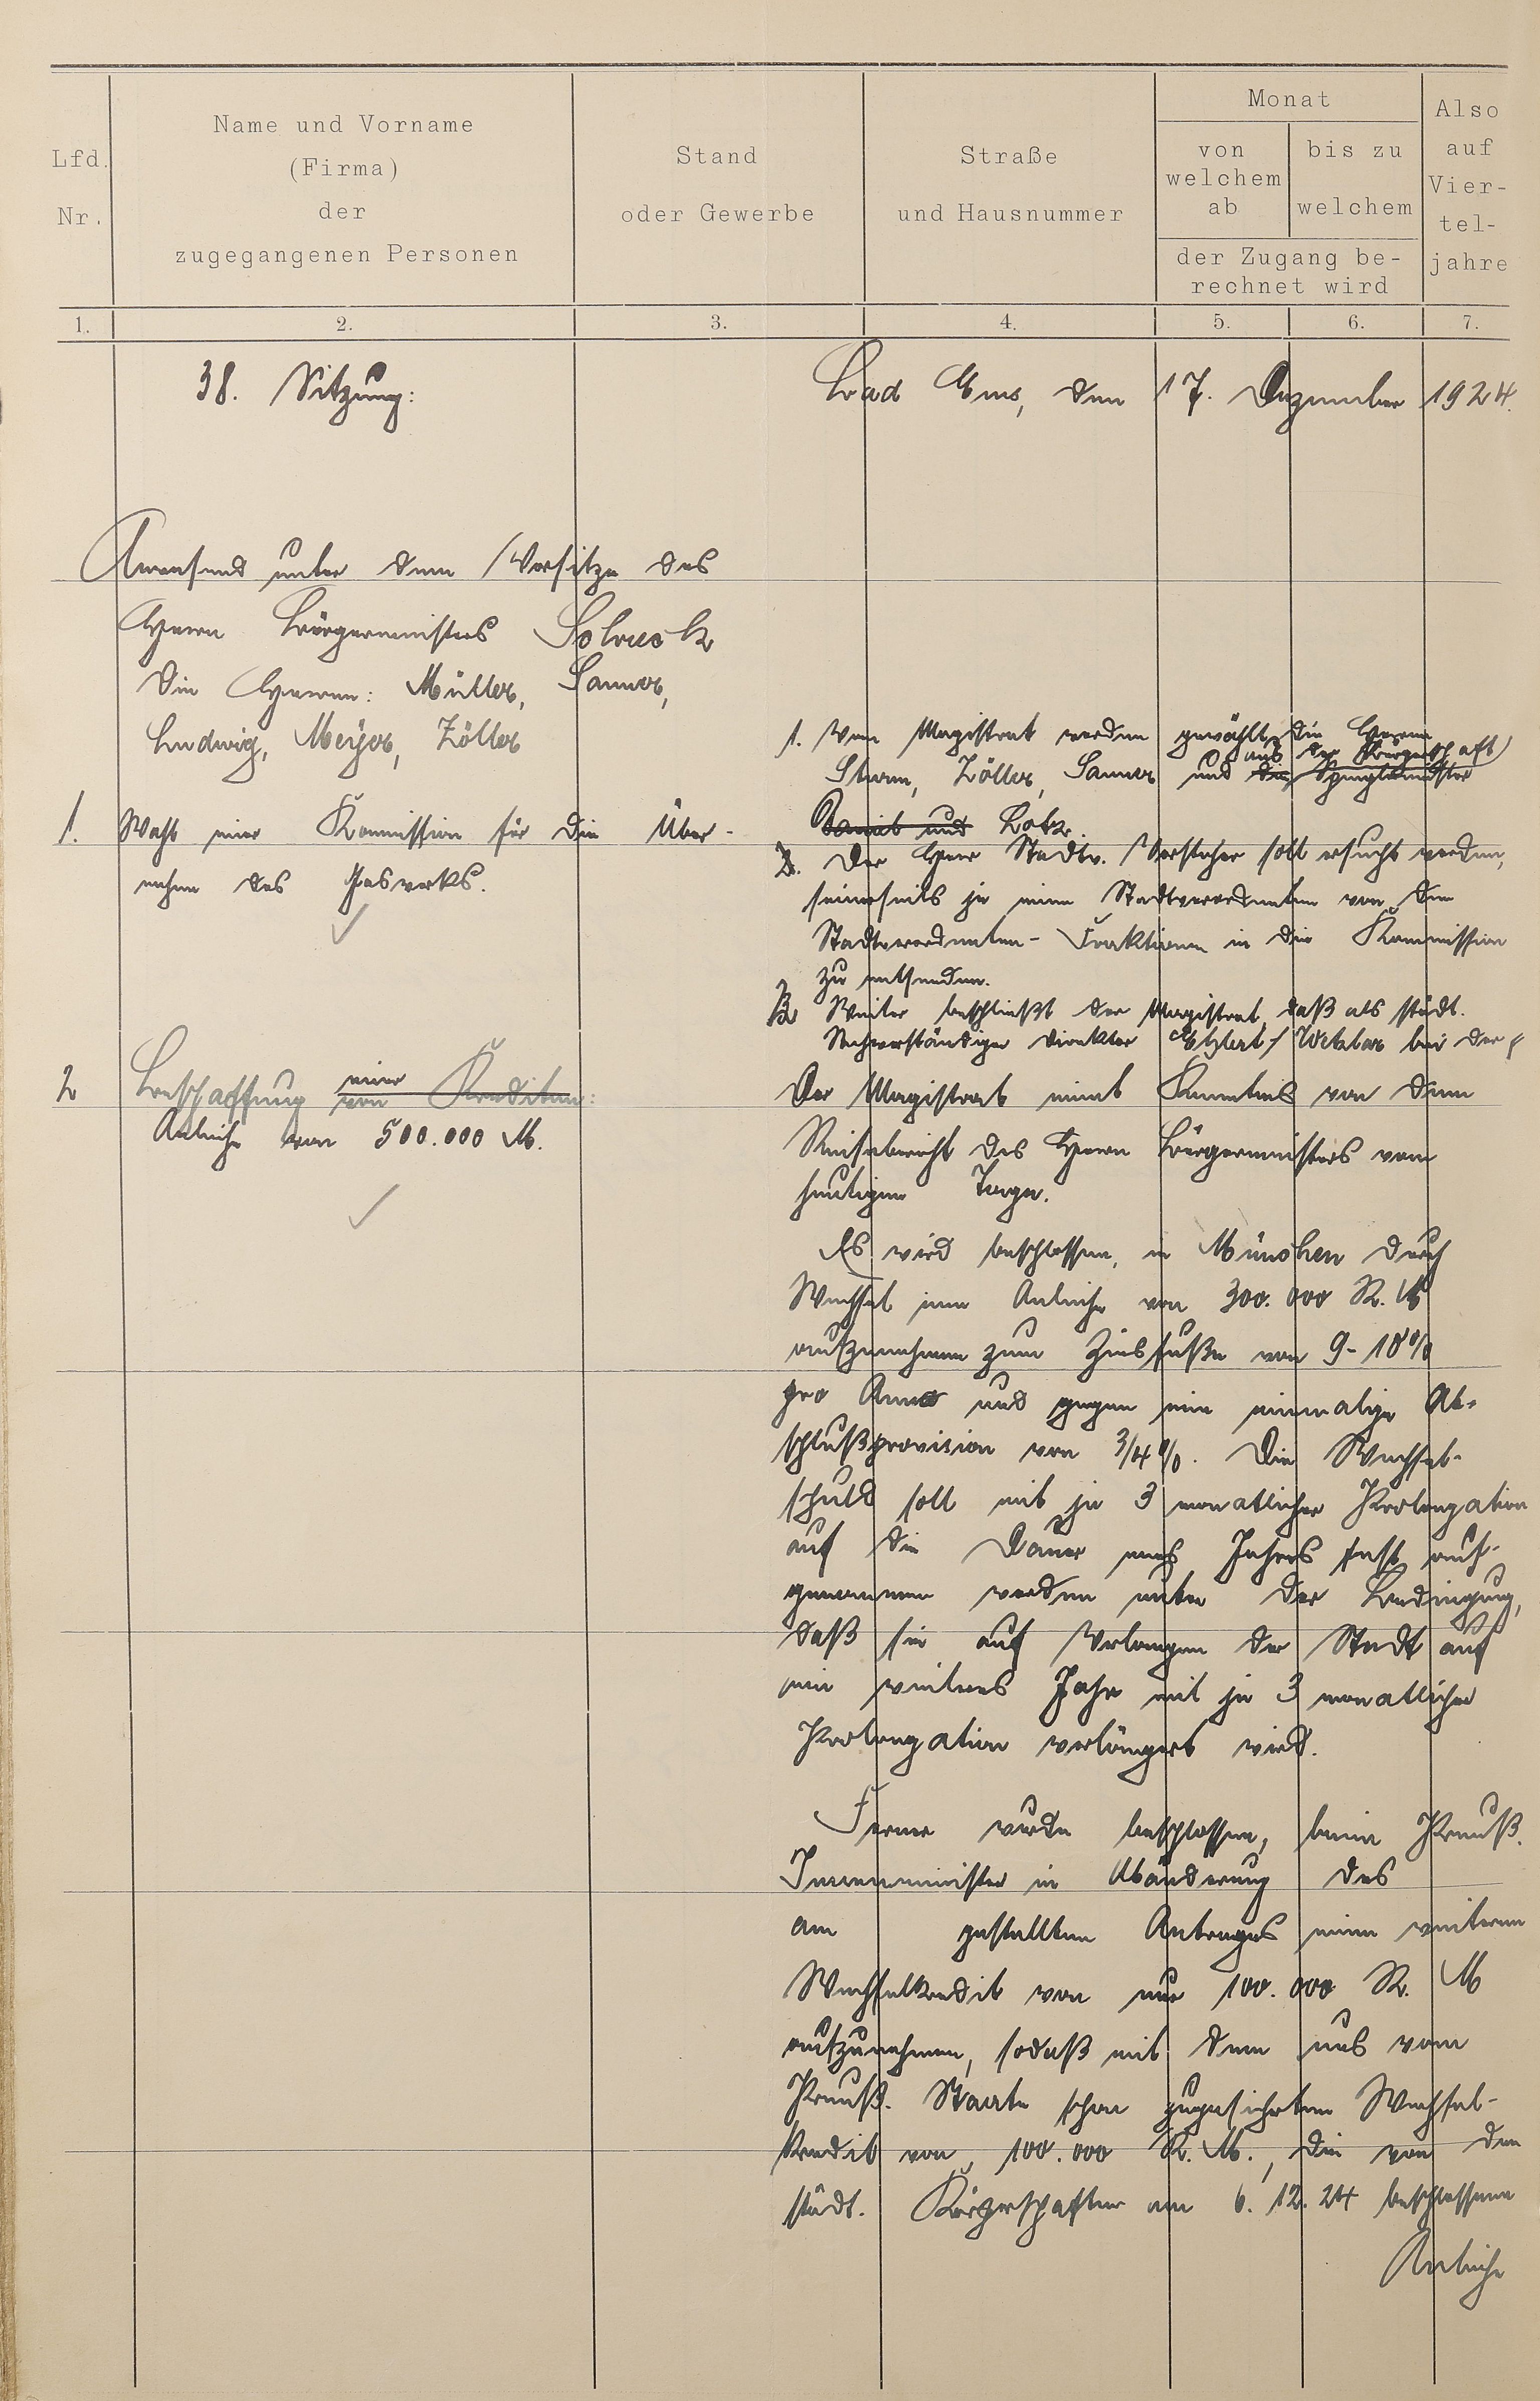 Lfd. Nr.
Name und Vorname
(Firma)
der
zugegangenen Personen
Stand
oder Gewerbe
Straße
und Hausnummer
Monat
von welchem ab
bis zu welchem
der Zugang be-
rechnet wird
Also auf Vier-
tel-
jahre
1. 2. 3. 4. 5. 6. 7.
38. Sitzung:
Bad Ems, den 17. Dezember 1924.
Anwesend unter dem Vorsitze des
Herrn Bürgermeisters Schreck
die Herren: Müller, Sauer,
Ludwig, Meyer, Zöller
1. Wahl einer Kommission für die Über-
nahme des Gaswerks.
1. Vom Magistrat werden gewählt die Herren
Sturm, Zöller, Sauer und die Spenglermeister
aus der Bürgerschaft
und Lotz.
2. Der Herr Stadtv. Vorsteher soll ersucht werden,
seinerseits je einen Stadtverordneten von den
Stadtverordneten-Fraktionen in die Kommission
zu entsenden.
3. Weiter beschließt der Magistrat, daß als städt.
Sachverständiger Direktor Wetzlar bei der
2 Beschaffung von Krediten:
einer
Anleihe von 500.000 M.
Der Magistrat nimt Kenntnis von dem
Reisebericht des Herrn Bürgermeisters vom
heutigen Tage.
Es wird beschlossen, in München durch
Wechsel eine Anleihe von 300.000 R.M
aufzunehmen zum Zinsfuße von 9-10%
pro Anno und gegen eine einmalige Ab-
schlußprovision von 3/4%. Die Wechsel-
schuld soll mit je 3 monatlicher Prolongation
auf die Dauer eines Jahres fest auf-
genommen werden unter der Bedingung,
daß sie auf Verlangen der Stadt auf
ein weiteres Jahr mit je 3 monatlicher
Prolongation verlängert wird.
Ferner wurde beschlossen, beim Preuß.
Innenminister in Abänderung des
am gestellten Antrages einen weiteren
Wechselkredit von nur 100.000 R. M
aufzunehmen, sodaß mit dem uns vom
Preuß. Staate schon zugesicherten Wechsel-
kredit von 100.000 R.M., die von den
städt. Körperschaften am 6.12.24 beschlossene
Anleihe